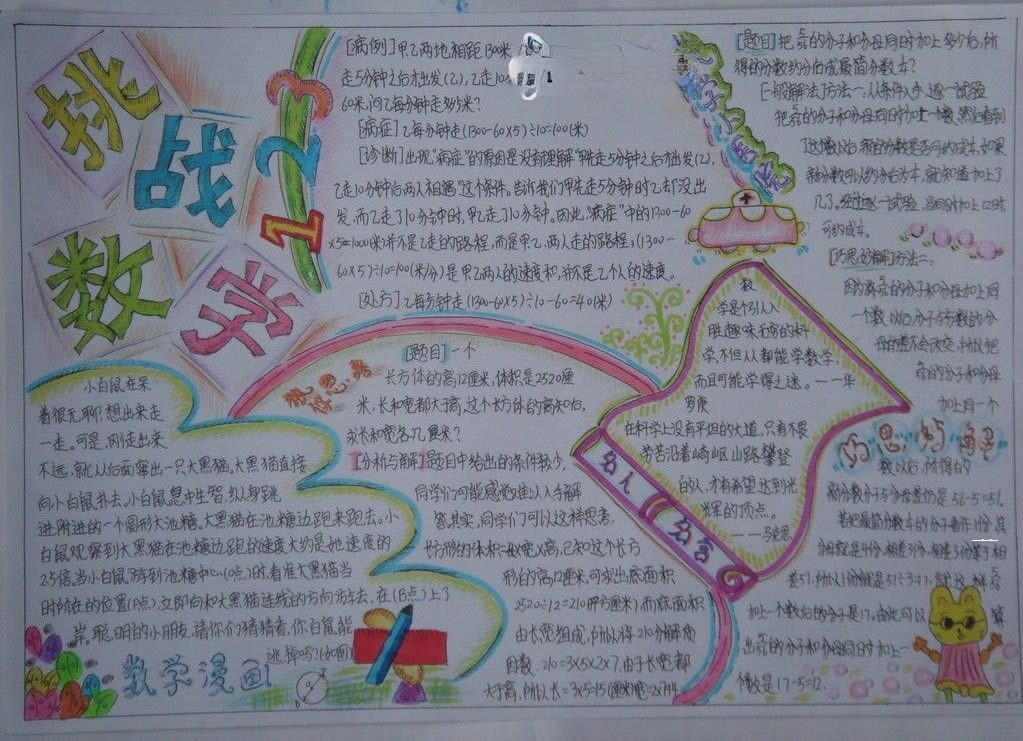 挑战数学
123
[病例]甲乙两地相距1300米
走5分钟之后才出发(乙),乙走10
60米问乙每分钟走多少米?
[病症]乙每分钟走(1300-60×5)÷10=100(米)
[诊断]出现"病症"的原因是没有理解"甲先走5分钟之后才出发(乙),
乙走10分钟后两人相遇"这个条件。告诉我们甲先走5分钟时乙却没出
发,而乙走了10分钟时,甲乙走了10分钟。因此"病症"中的1300-60
×5=1000(米)并不是乙走的路程,而是甲、乙,两人走的路程;(1300-
60×5)÷10=100(米/分)是甲乙两人的速度和,并不是乙个人的速度。
[处方]乙每分钟走(1300-60×5)÷10-60=40(米)
数学医院
[题目]把 的分子和分母同时加上多少后,所
得的分数约分后成最简分数 ?
[一般解法]方法一、从条件入手,逐一试验
把 的分子和分母同时加上一个数,然后看到
了这个数以后 新的分数是否可约成 如果
新分数可以约分后为 ,就知道加上了
几了。经过逐一试验,当同时加上12时
可约成
[巧思妙解]方法二、
因为将 的分子和分母加上同
一个数以后分子与分母的分
母的差不会改变,所以把
的分子和分母
加上同一个
数以后,所得的
新分数分子与分母差仍是56-5=51。
若把最简分数 的分子看作1份,其
分母就是4份,相差3份,相差3份等于相
差51,所以1份就是51÷3=17,就这样
加上一个数后的分子是17,由此可以 算
出 的分子和分母同时加上一
个数是17-5=12.
巧思妙解
数
学是个引人入
胜趣味无穷的科
学,不但人人都能学数学,
而且可能学得之迷。——华
罗庚
在科学上没有平坦的大道,只有不畏
劳苦沿着崎岖山路攀登
的人,才有希望达到光
辉的顶点。
——马克思
名人名言
我思路
[题目]一个
长方体的高12厘米,体积是2520厘
米,长和宽都大于高,这个长方体的高知后,
求长和宽各几厘米?
[分析与解]题目中给出的条件较少,
同学们可能感觉难以入手解
答,其实,同学们可以这样思考:
长方形的体积=长×宽×高,已知这个长方
形的高12厘米,可求出底面积
2520÷12=210(平方厘米),而底面积
由长宽组成,所以将210分解质
因数,210=3×5×2×7.由于长宽都
大于高,所以长=3×5=15(厘米)宽=2×7=14
小白鼠在呆
着很无聊,想出来走
一走。可是,刚走出来
不远,就从后面窜出一只大黑猫。大黑猫直接
向小白鼠扑去,小白鼠急中生智,纵身跳
进附进的一个圆形大池塘。大黑猫在池塘边跑来跑去。小
白鼠观察到大黑猫在池塘边跑的速度大约是她速度的
2.5倍。当小白鼠游到池塘中心(O点)时,看准大黑猫当
时所在的位置(P点),立即向和大黑猫连线的方向游去,在(B点)上了
岸。聪明的小朋友,请你们猜猜看,你白鼠能
逃掉吗?(如图)
数学漫画
B